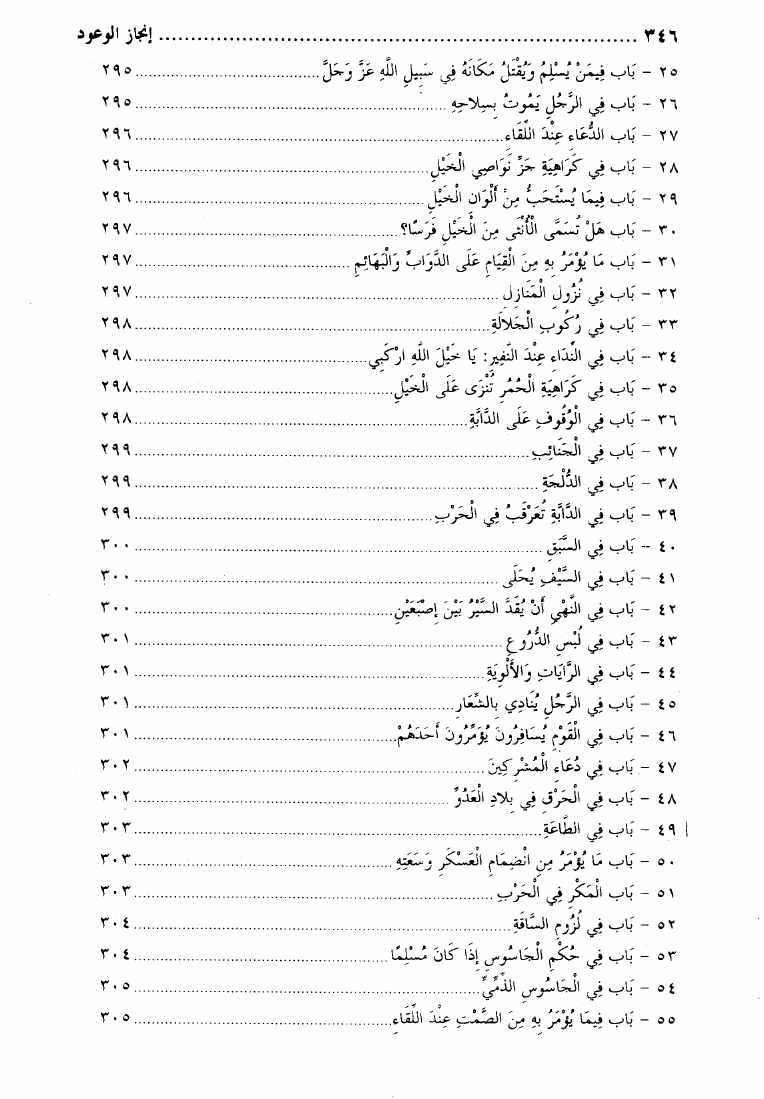 ٣٤٦ ........ إنجاز الوعود
٢٥ - بَاب فِيمَنْ يُسْلِمُ وَيُقْتَلُ مَكَانَهُ فِي سَبِيلِ اللَّهِ عَزَّ وَجَلَّ ........ ٢٩٥
٢٦ - بَاب فِي الرَّجُلِ يَمُوتُ بِسِلَاحِهِ ........ ٢٩٥
٢٧ - بَاب الدُّعَاءِ عِنْدَ اللِّقَاءِ ........ ٢٩٦
٢٨ - بَاب فِي كَرَاهِيَةِ جَزِّ نَوَاصِي الْخَيْلِ ........ ٢٩٦
٢٩ - بَاب فِيمَا يُسْتَحَبُّ مِنْ أَلْوَانِ الْخَيْلِ ........ ٢٩٦
٣٠ - بَاب هَلْ تُسَمَّى الْأُنْثَى مِنَ الْخَيْلِ فَرَسًا؟ ........ ٢٩٧
٣١ - بَاب مَا يُؤْمَرُ بِهِ مِنَ الْقِيَامِ عَلَى الدَّوَابِّ وَالْبَهَائِمِ ........ ٢٩٧
٣٢ - بَاب فِي نُزُولِ الْمَنَازِلِ ........ ٢٩٧
٣٣ - بَاب فِي رُكُوبِ الْجَلَّالَةِ ........ ٢٩٨
٣٤ - بَاب فِي النِّدَاءِ عِنْدَ النَّفِيرِ: يَا خَيْلَ اللَّهِ ارْكَبِي ........ ٢٩٨
٣٥ - بَاب فِي كَرَاهِيَةِ الْحُمُرِ تُنْزَى عَلَى الْخَيْلِ ........ ٢٩٨
٣٦ - بَاب فِي الْوُقُوفِ عَلَى الدَّابَّةِ ........ ٢٩٨
٣٧ - بَاب فِي الْجَنَائِبِ ........ ٢٩٩
٣٨ - بَاب فِي الدُّلْجَةِ ........ ٢٩٩
٣٩ - بَاب فِي الدَّابَّةِ تُعَرْقَبُ فِي الْحَرْبِ ........ ٢٩٩
٤٠ - بَاب فِي السَّبَقِ ........ ٣٠٠
٤١ - بَاب فِي السَّيْفِ يُحَلَّى ........ ٣٠٠
٤٢ - بَاب فِي النَّهْيِ أَنْ يُقَدَّ السَّيْرُ بَيْنَ إِصْبَعَيْنِ ........ ٣٠٠
٤٣ - بَاب فِي لُبْسِ الدُّرُوعِ ........ ٣٠١
٤٤ - بَاب فِي الرَّايَاتِ وَالْأَلْوِيَةِ ........ ٣٠١
٤٥ - بَاب فِي الرَّجُلِ يُنَادِي بِالشِّعَارِ ........ ٣٠١
٤٦ - بَاب فِي الْقَوْمِ يُسَافِرُونَ يُؤَمِّرُونَ أَحَدَهُمْ ........ ٣٠١
٤٧ - بَاب فِي دُعَاءِ الْمُشْرِكِينَ ........ ٣٠٢
٤٨ - بَاب فِي الْحَرْقِ فِي بِلَادِ الْعَدُوِّ ........ ٣٠٢
٤٩ - بَاب فِي الطَّاعَةِ ........ ٣٠٣
٥٠ - بَاب مَا يُؤْمَرُ مِنِ انْضِمَامِ الْعَسْكَرِ وَسَعَتِهِ ........ ٣٠٣
٥١ - بَاب الْمَكْرِ فِي الْحَرْبِ ........ ٣٠٣
٥٢ - بَاب فِي لُزُومِ السَّاقَةِ ........ ٣٠٤
٥٣ - بَاب فِي حُكْمِ الْجَاسُوسِ إِذَا كَانَ مُسْلِمًا ........ ٣٠٤
٥٤ - بَاب فِي الْجَاسُوسِ الذِّمِّيِّ ........ ٣٠٥
٥٥ - بَاب فِيمَا يُؤْمَرُ بِهِ مِنَ الصَّمْتِ عِنْدَ اللِّقَاءِ ........ ٣٠٥